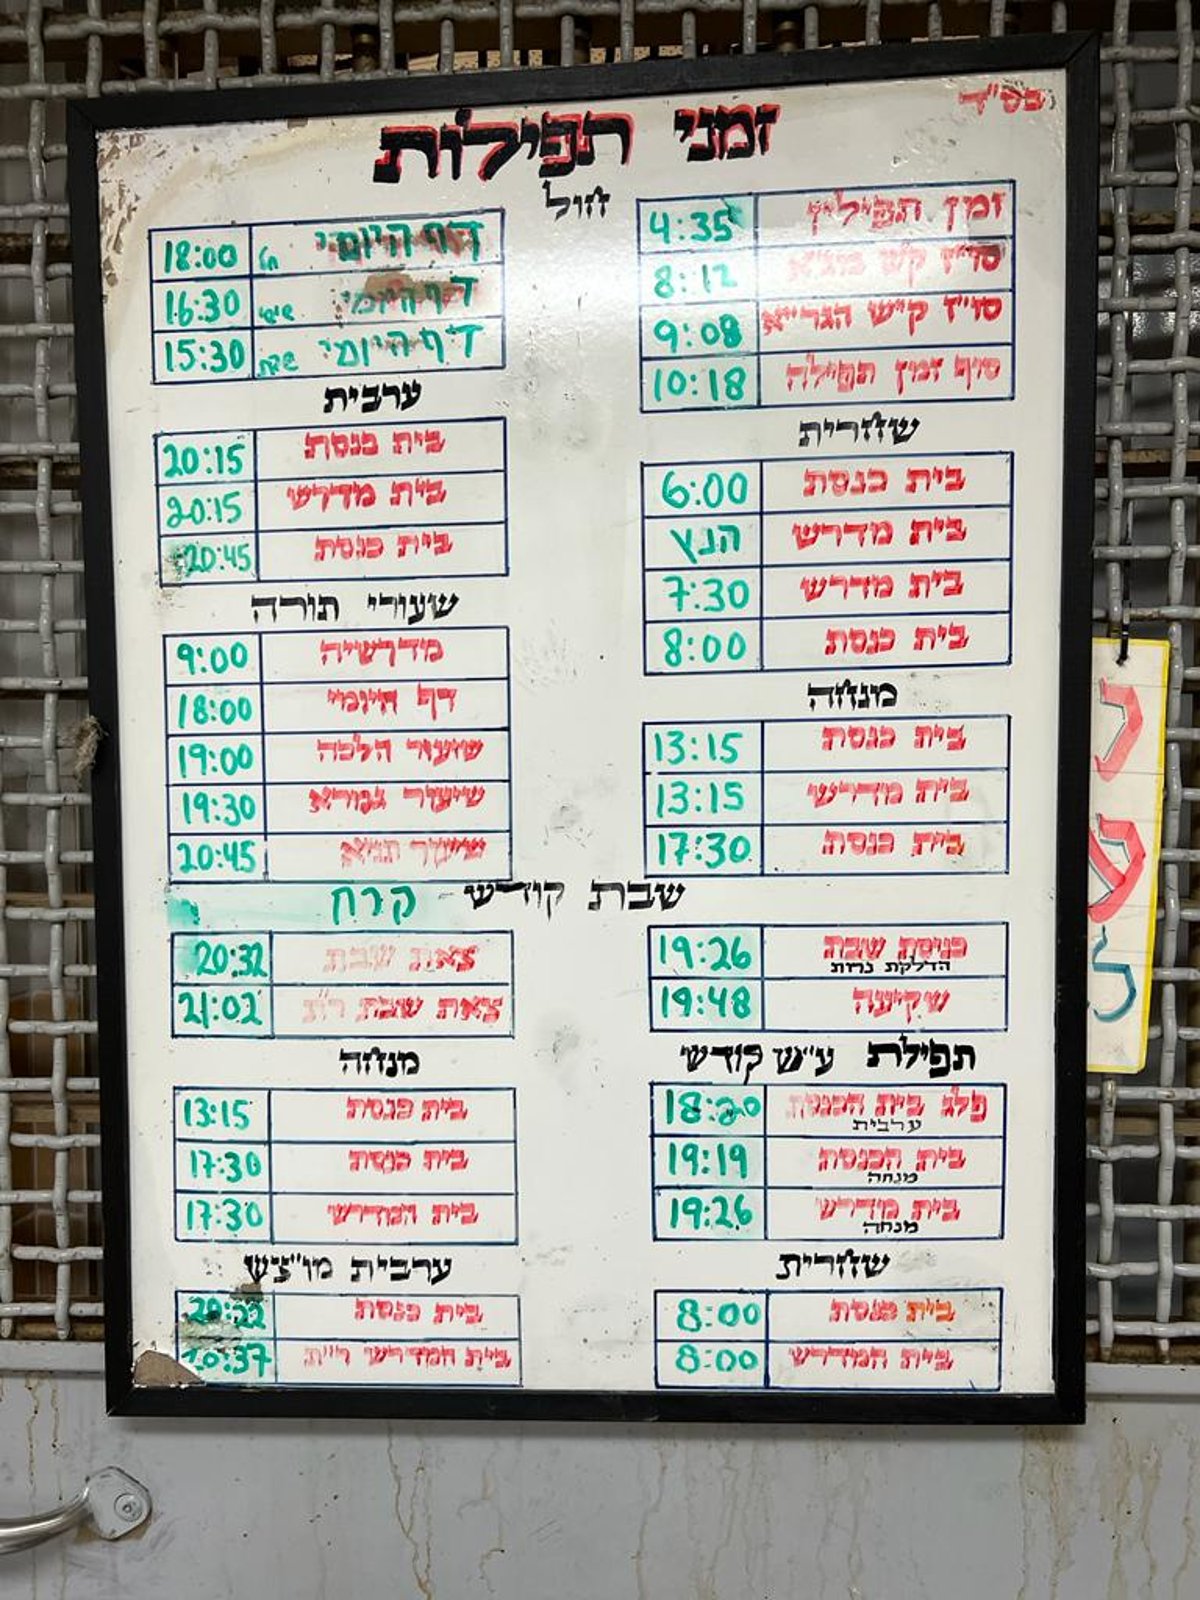 בס"ד
זמני תפילות
חול
זמן תפילין 4:35
סו"ז ק"ש מג"א 8:12
סו"ז ק"ש הגר"א 9:08
סוף זמן תפילה 10:18
שחרית
בית כנסת 6:00
בית מדרש הנץ
בית מדרש 7:30
בית כנסת 8:00
מנחה
בית כנסת 13:15
בית מדרש 13:15
בית כנסת 17:30
דף היומי 18:00
דף היומי שישי 16:30
דף היומי שבת 15:30
ערבית
בית כנסת 20:15
בית מדרש 20:15
בית כנסת 20:45
שעורי תורה
מדרשיה 9:00
דף היומי 18:00
שיעור הלכה 19:00
שיעור גמרא 19:30
שיעור תניא 20:45
שבת קודש - קרח
כניסת שבת 19:26
הדלקת נרות
שקיעה 19:48
תפילת ע"ש קודש
פלג בית הכנסת 18:20
ערבית
בית הכנסת 19:19
מנחה
בית מדרש 19:26
מנחה
שחרית
בית כנסת 8:00
בית המדרש 8:00
צאת שבת 20:32
צאת שבת ר"ת 21:02
מנחה
בית כנסת 13:15
בית כנסת 17:30
בית המדרש 17:30
ערבית מו"צש
בית כנסת 20:22
בית המדרש ר"ת 20:37